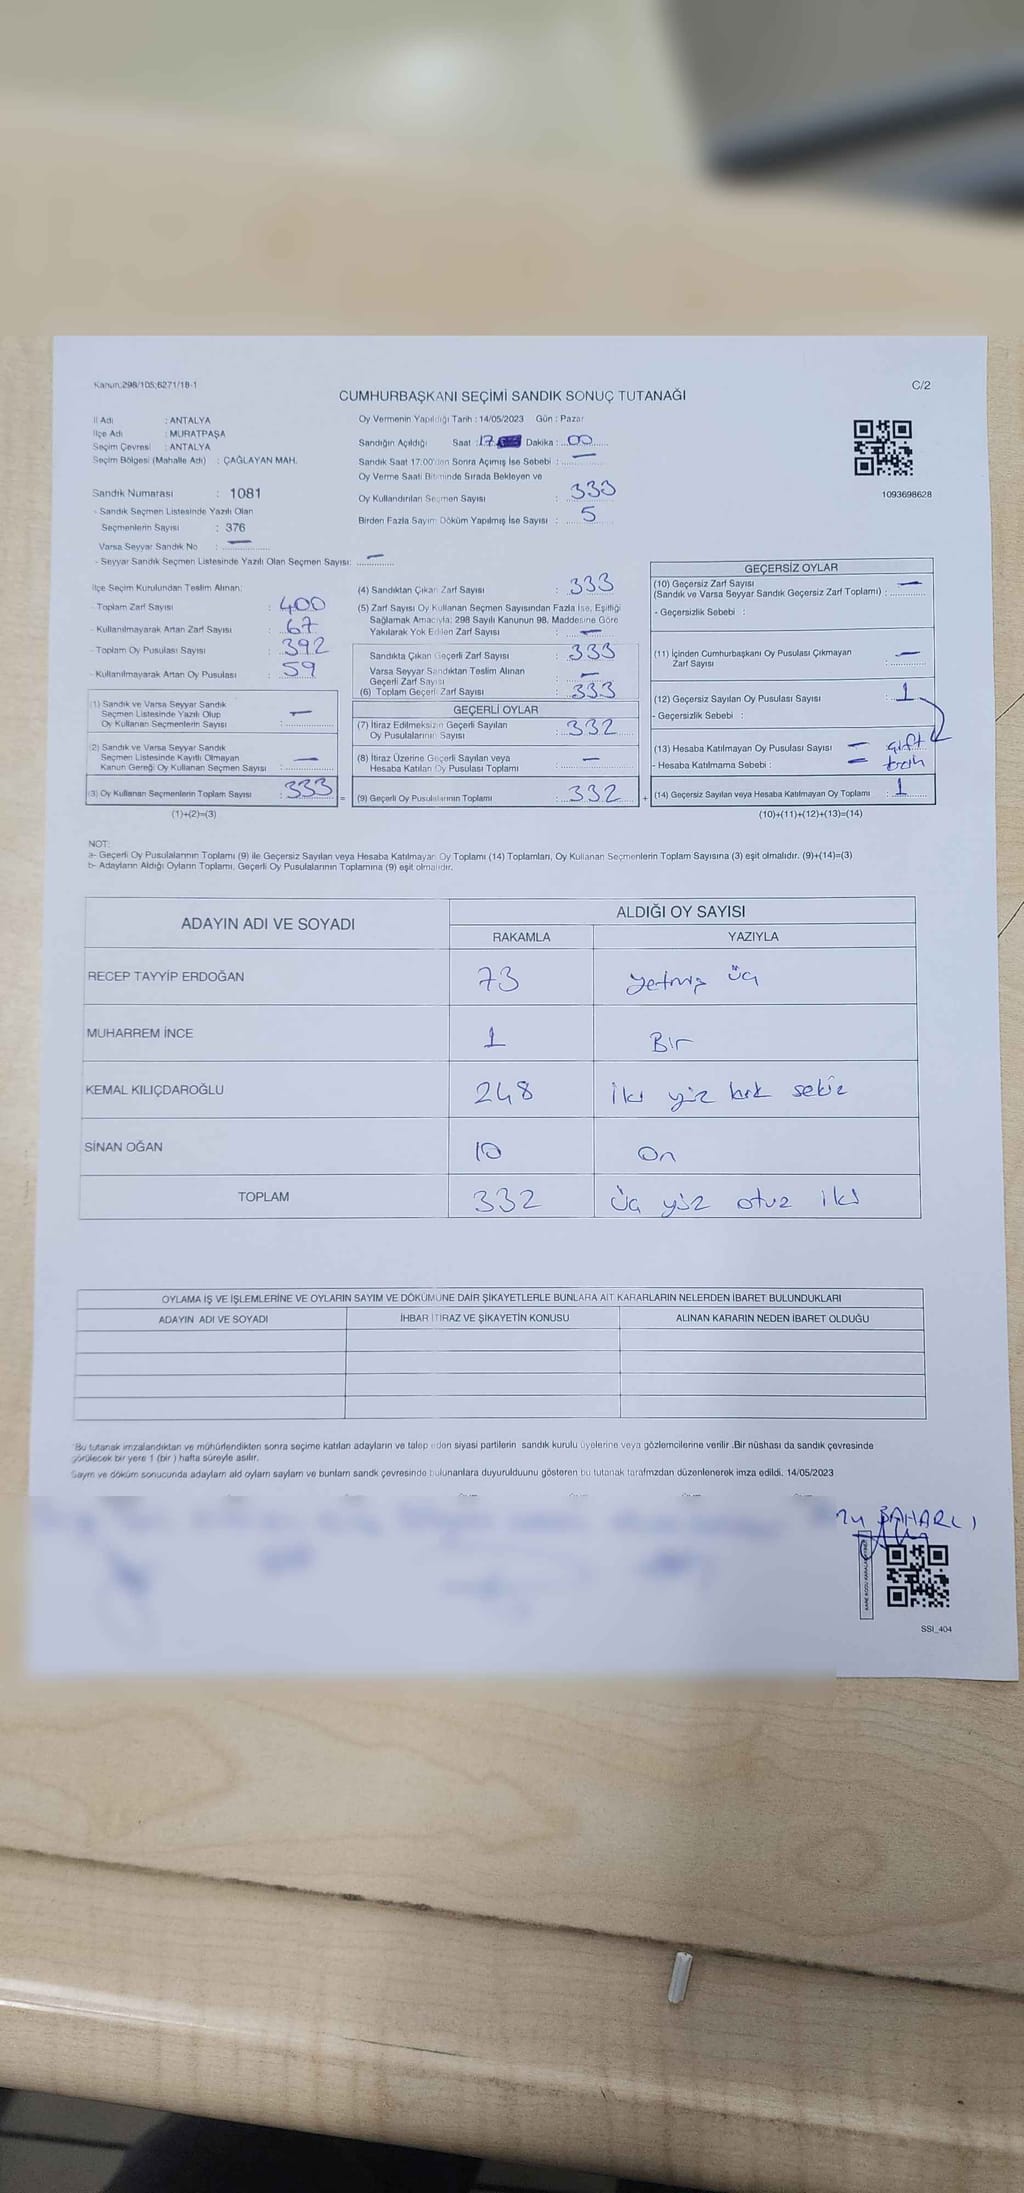 Kanun:298/105;6271/18-1
C/2
CUMHURBAŞKANI SEÇİMİ SANDIK SONUÇ TUTANAĞI
İl Adı : ANTALYA
İlçe Adı : MURATPAŞA
Seçim Çevresi : ANTALYA
Seçim Bölgesi (Mahalle Adı) : ÇAĞLAYAN MAH.
Sandık Numarası : 1081
- Sandık Seçmen Listesinde Yazılı Olan
Seçmenlerin Sayısı : 376
Varsa Seyyar Sandık No : —
- Seyyar Sandık Seçmen Listesinde Yazılı Olan Seçmen Sayısı: —
Oy Vermenin Yapıldığı Tarih : 14/05/2023 Gün : Pazar
Sandığın Açıldığı Saat : 17 Dakika : 00
Sandık Saat 17:00'den Sonra Açımış İse Sebebi : —
Oy Verme Saati Bitiminde Sırada Bekleyen ve
Oy Kullandırılan Seçmen Sayısı : 333
Birden Fazla Sayım Döküm Yapılmış İse Sayısı : 5
1093698628
İlçe Seçim Kurulundan Teslim Alınan;
- Toplam Zarf Sayısı : 400
- Kullanılmayarak Artan Zarf Sayısı : 67
- Toplam Oy Pusulası Sayısı : 392
- Kullanılmayarak Artan Oy Pusulası : 59
(1) Sandık ve Varsa Seyyar Sandık
Seçmen Listesinde Yazılı Olup
Oy Kullanan Seçmenlerin Sayısı : —
(2) Sandık ve Varsa Seyyar Sandık
Seçmen Listesinde Kayıtlı Olmayan
Kanun Gereği Oy Kullanan Seçmen Sayısı : —
(3) Oy Kullanan Seçmenlerin Toplam Sayısı : 333
(1)+(2)=(3)
(4) Sandıktan Çıkan Zarf Sayısı : 333
(5) Zarf Sayısı Oy Kullanan Seçmen Sayısından Fazla İse, Eşitliği
Sağlamak Amacıyla; 298 Sayılı Kanunun 98. Maddesine Göre
Yakılarak Yok Edilen Zarf Sayısı : —
Sandıkta Çıkan Geçerli Zarf Sayısı : 333
Varsa Seyyar Sandıktan Teslim Alınan
Geçerli Zarf Sayısı : —
(6) Toplam Geçerli Zarf Sayısı : 333
GEÇERLİ OYLAR
(7) İtiraz Edilmeksizin Geçerli Sayılan
Oy Pusulalarının Sayısı : 332
(8) İtiraz Üzerine Geçerli Sayılan veya
Hesaba Katılan Oy Pusulası Toplamı : —
(9) Geçerli Oy Pusulalarının Toplamı : 332
GEÇERSİZ OYLAR
(10) Geçersiz Zarf Sayısı —
(Sandık ve Varsa Seyyar Sandık Geçersiz Zarf Toplamı) :
- Geçersizlik Sebebi :
(11) İçinden Cumhurbaşkanı Oy Pusulası Çıkmayan
Zarf Sayısı : —
(12) Geçersiz Sayılan Oy Pusulası Sayısı : 1
- Geçersizlik Sebebi :
(13) Hesaba Katılmayan Oy Pusulası Sayısı — çift
- Hesaba Katılmama Sebebi : —
(14) Geçersiz Sayılan veya Hesaba Katılmayan Oy Toplamı : 1
(10)+(11)+(12)+(13)=(14)
NOT:
a- Geçerli Oy Pusulalarının Toplamı (9) ile Geçersiz Sayılan veya Hesaba Katılmayan Oy Toplamı (14) Toplamları, Oy Kullanan Seçmenlerin Toplam Sayısına (3) eşit olmalıdır. (9)+(14)=(3)
b- Adayların Aldığı Oyların Toplamı, Geçerli Oy Pusulalarının Toplamına (9) eşit olmalıdır.
ADAYIN ADI VE SOYADI
ALDIĞI OY SAYISI
RAKAMLA YAZIYLA
RECEP TAYYİP ERDOĞAN 73 Yetmiş üç
MUHARREM İNCE 1 Bir
KEMAL KILIÇDAROĞLU 248 İki yüz kırk sekiz
SİNAN OĞAN 10 On
TOPLAM 332 Üç yüz otuz iki
OYLAMA İŞ VE İŞLEMLERİNE VE OYLARIN SAYIM VE DÖKÜMÜNE DAİR ŞİKAYETLERLE BUNLARA AİT KARARLARIN NELERDEN İBARET BULUNDUKLARI
ADAYIN ADI VE SOYADI İHBAR İTİRAZ VE ŞİKAYETİN KONUSU ALINAN KARARIN NEDEN İBARET OLDUĞU
*Bu tutanak imzalandıktan ve mühürlendikten sonra seçime katılan adayların ve talep eden siyasi partilerin sandık kurulu üyelerine veya gözlemcilerine verilir .Bir nüshası da sandık çevresinde
görülecek bir yere 1 (bir ) hafta süreyle asılır.
Saym ve döküm sonucunda adaylarn ald oylarn saylarn ve bunlarn sandk çevresinde bulunanlara duyurulduunu gösteren bu tutanak tarafmzdan düzenlenerek imza edildi. 14/05/2023
BAHARLI
SSI_404